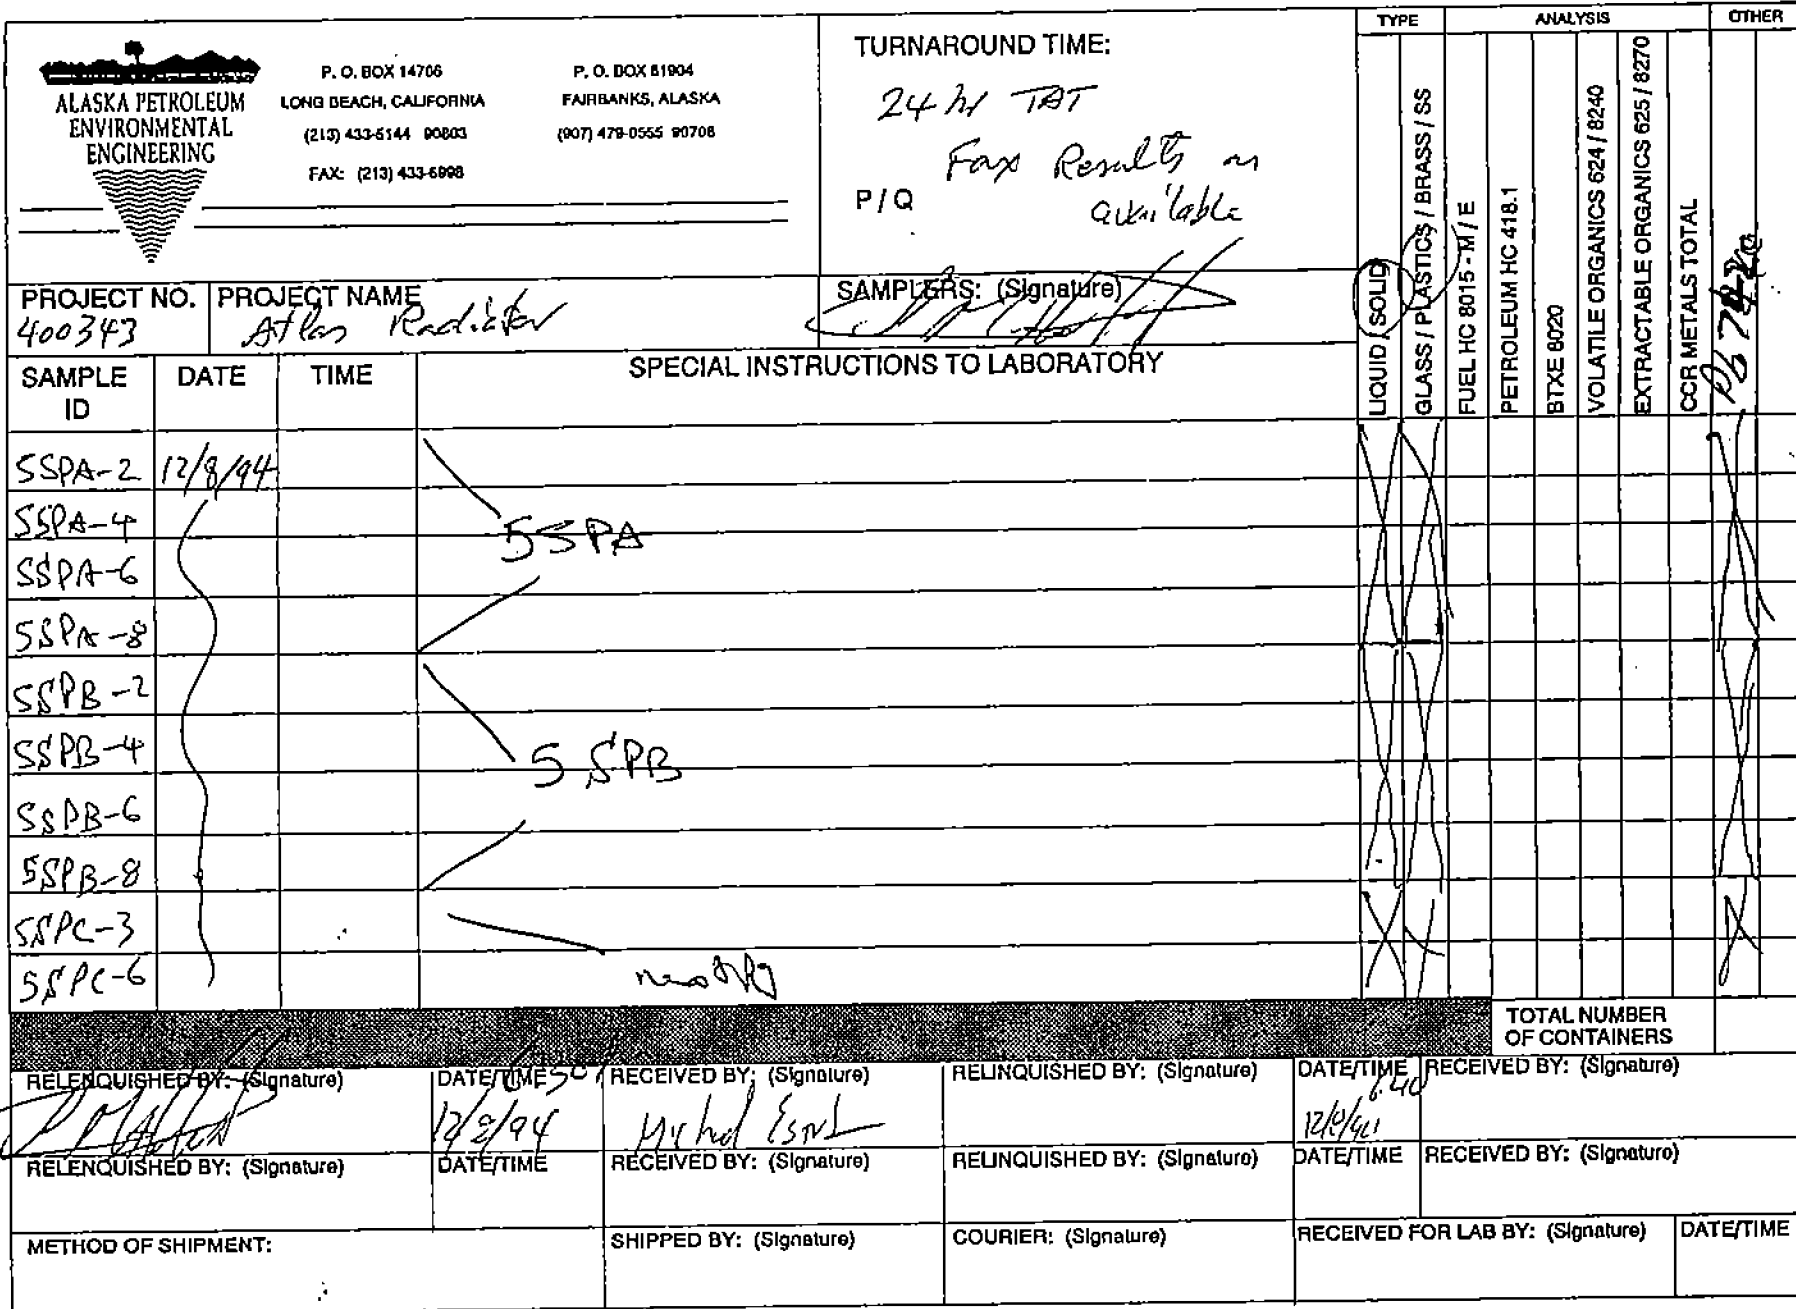 ALASKA PETROLEUM
ENVIRONMENTAL
ENGINEERING
P. O. BOX 14706
LONG BEACH, CALIFORNIA
(213) 433-5144 90803
FAX: (213) 433-6998
P. O. BOX 81904
FAIRBANKS, ALASKA
(907) 479-0555 90708
TURNAROUND TIME:
24 hr TAT
Fax Results as
available
P / Q
PROJECT NO.
400343
PROJECT NAME
Atlas Radiator
SAMPLERS: (Signature)
TYPE
ANALYSIS
OTHER
LIQUID / SOLID
GLASS / PLASTICS / BRASS / SS
FUEL HC 8015 - M / E
PETROLEUM HC 418.1
BTXE 8020
VOLATILE ORGANICS 624 / 8240
EXTRACTABLE ORGANICS 625 / 8270
CCR METALS TOTAL
Pb
SAMPLE ID
DATE
TIME
SPECIAL INSTRUCTIONS TO LABORATORY
5SPA-2 12/8/94
5SPA-4
5SPA
5SPA-6
5SPA-8
5SPB-2
5SPB-4
5SPB
5SPB-6
5SPB-8
5SPC-3
5SPC-6
TOTAL NUMBER
OF CONTAINERS
RELENQUISHED BY: (Signature)
DATE/TIME
12/8/94
RECEIVED BY: (Signature)
RELINQUISHED BY: (Signature)
DATE/TIME
RECEIVED BY: (Signature)
RELENQUISHED BY: (Signature)
DATE/TIME
RECEIVED BY: (Signature)
RELINQUISHED BY: (Signature)
DATE/TIME
RECEIVED BY: (Signature)
METHOD OF SHIPMENT:
SHIPPED BY: (Signature)
COURIER: (Signature)
RECEIVED FOR LAB BY: (Signature)
DATE/TIME